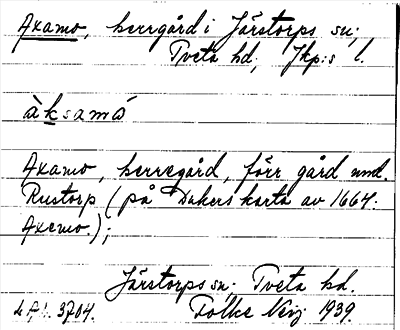 Axamo, herrgård i Järstorps sn;
Tveta hd; Jkp:s l.
àksamó
Axamo, herregård, förr gård und.
Rustorp (på Dukers karta av 1664.
Axemo.);
Järstorps sn; Tveta hd.
3704. Folke 1939.